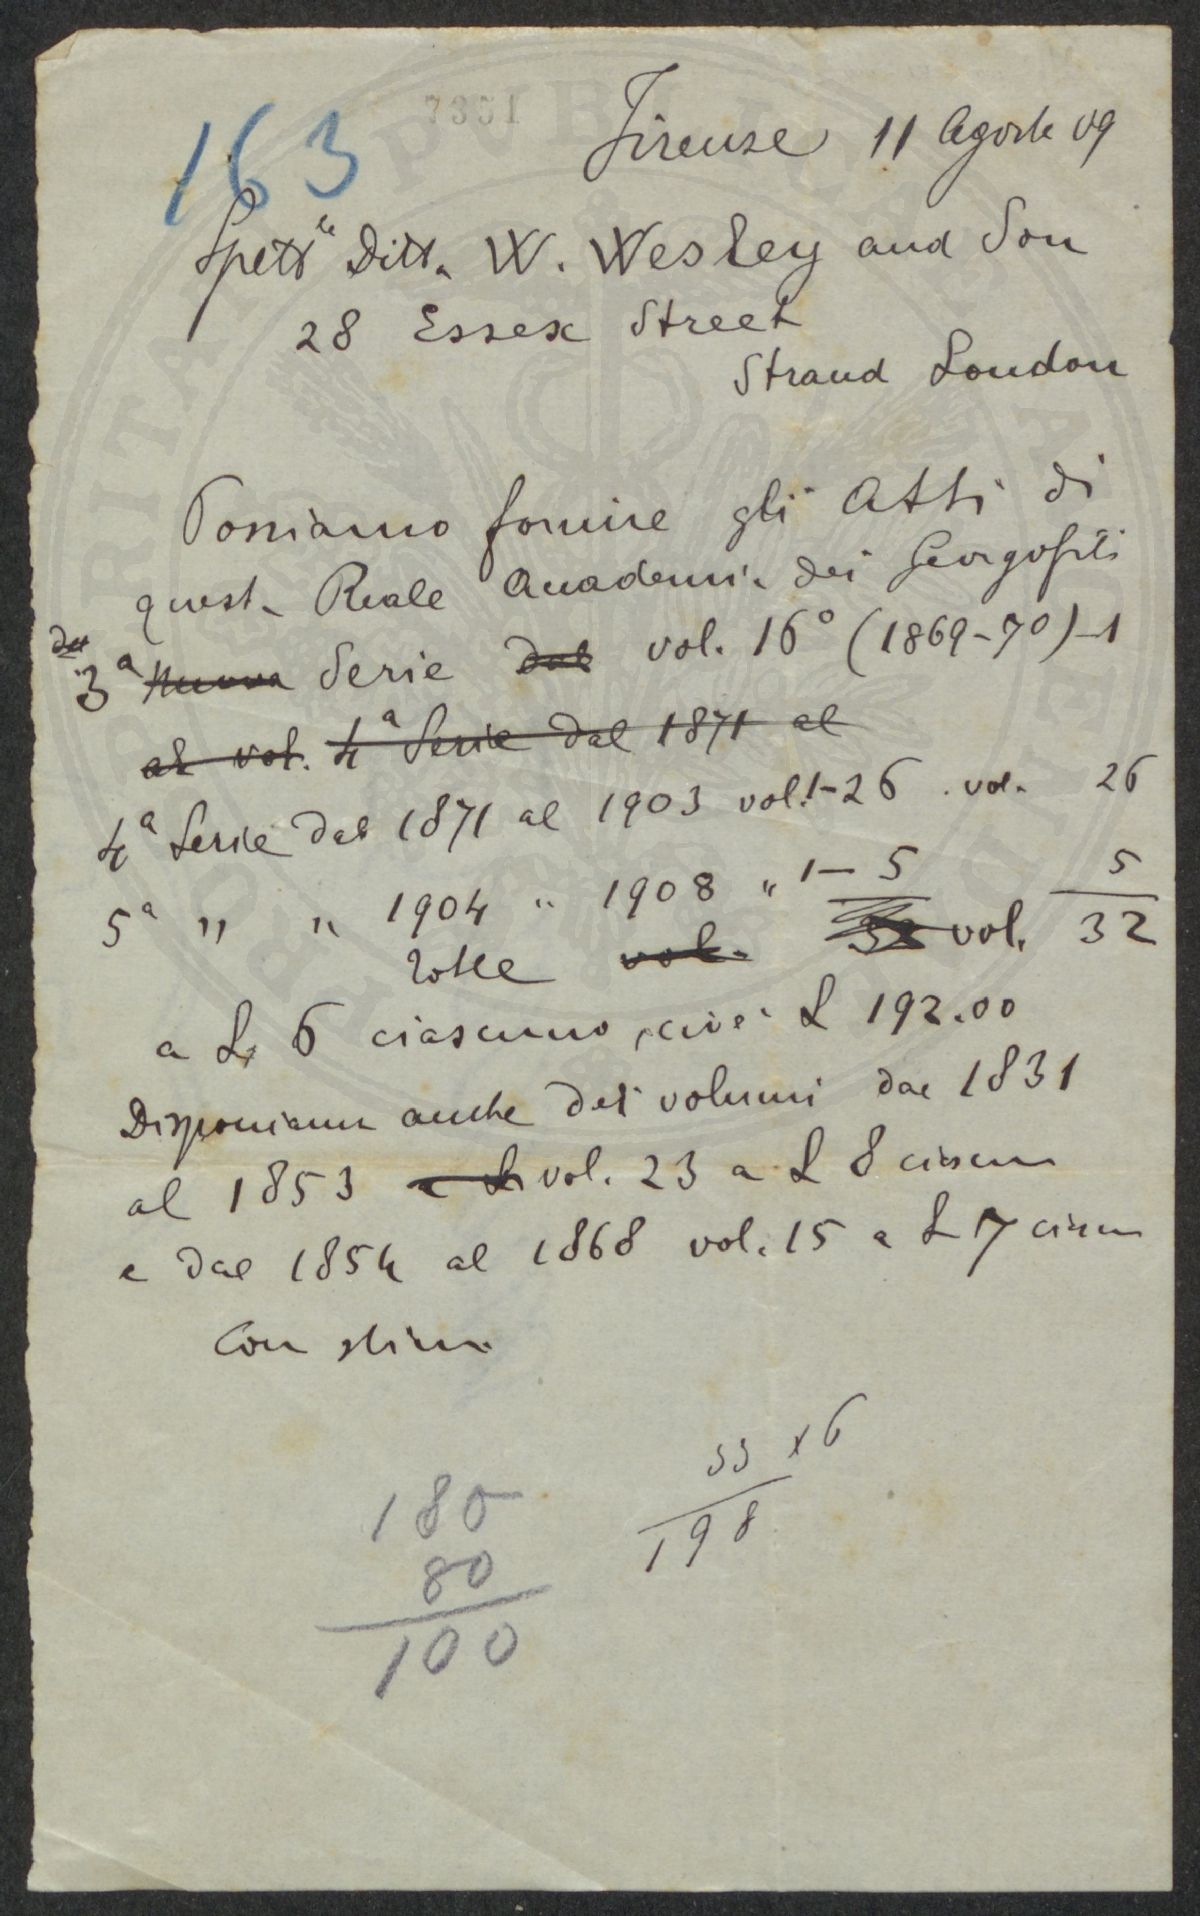 7351
163
Firenze 11 Agosto 09
Spett^le Ditta W. Wesley and Son
28 Essex Street
Strand London
Possiamo fornire gli Atti di
questa Reale Accademia dei Georgofili
3ª Nuova Serie dal vol. 16° (1869-70)-1
al vol. 4ª Serie dal 1871 al
4ª Serie dal 1871 al 1903 vol. 1-26 . vol. 26
5ª " " 1904 " 1908 " 1-5 5
totale vol. vol. 32
a L. 6 ciascuno, cioè L 192.00
Disponiamo anche dei volumi dal 1831
al 1853 a L. vol. 23 a L 8 ciascun
e dal 1854 al 1868 vol. 15 a L 7 ciascun
Con stima
33 x 6
198
180
80
100